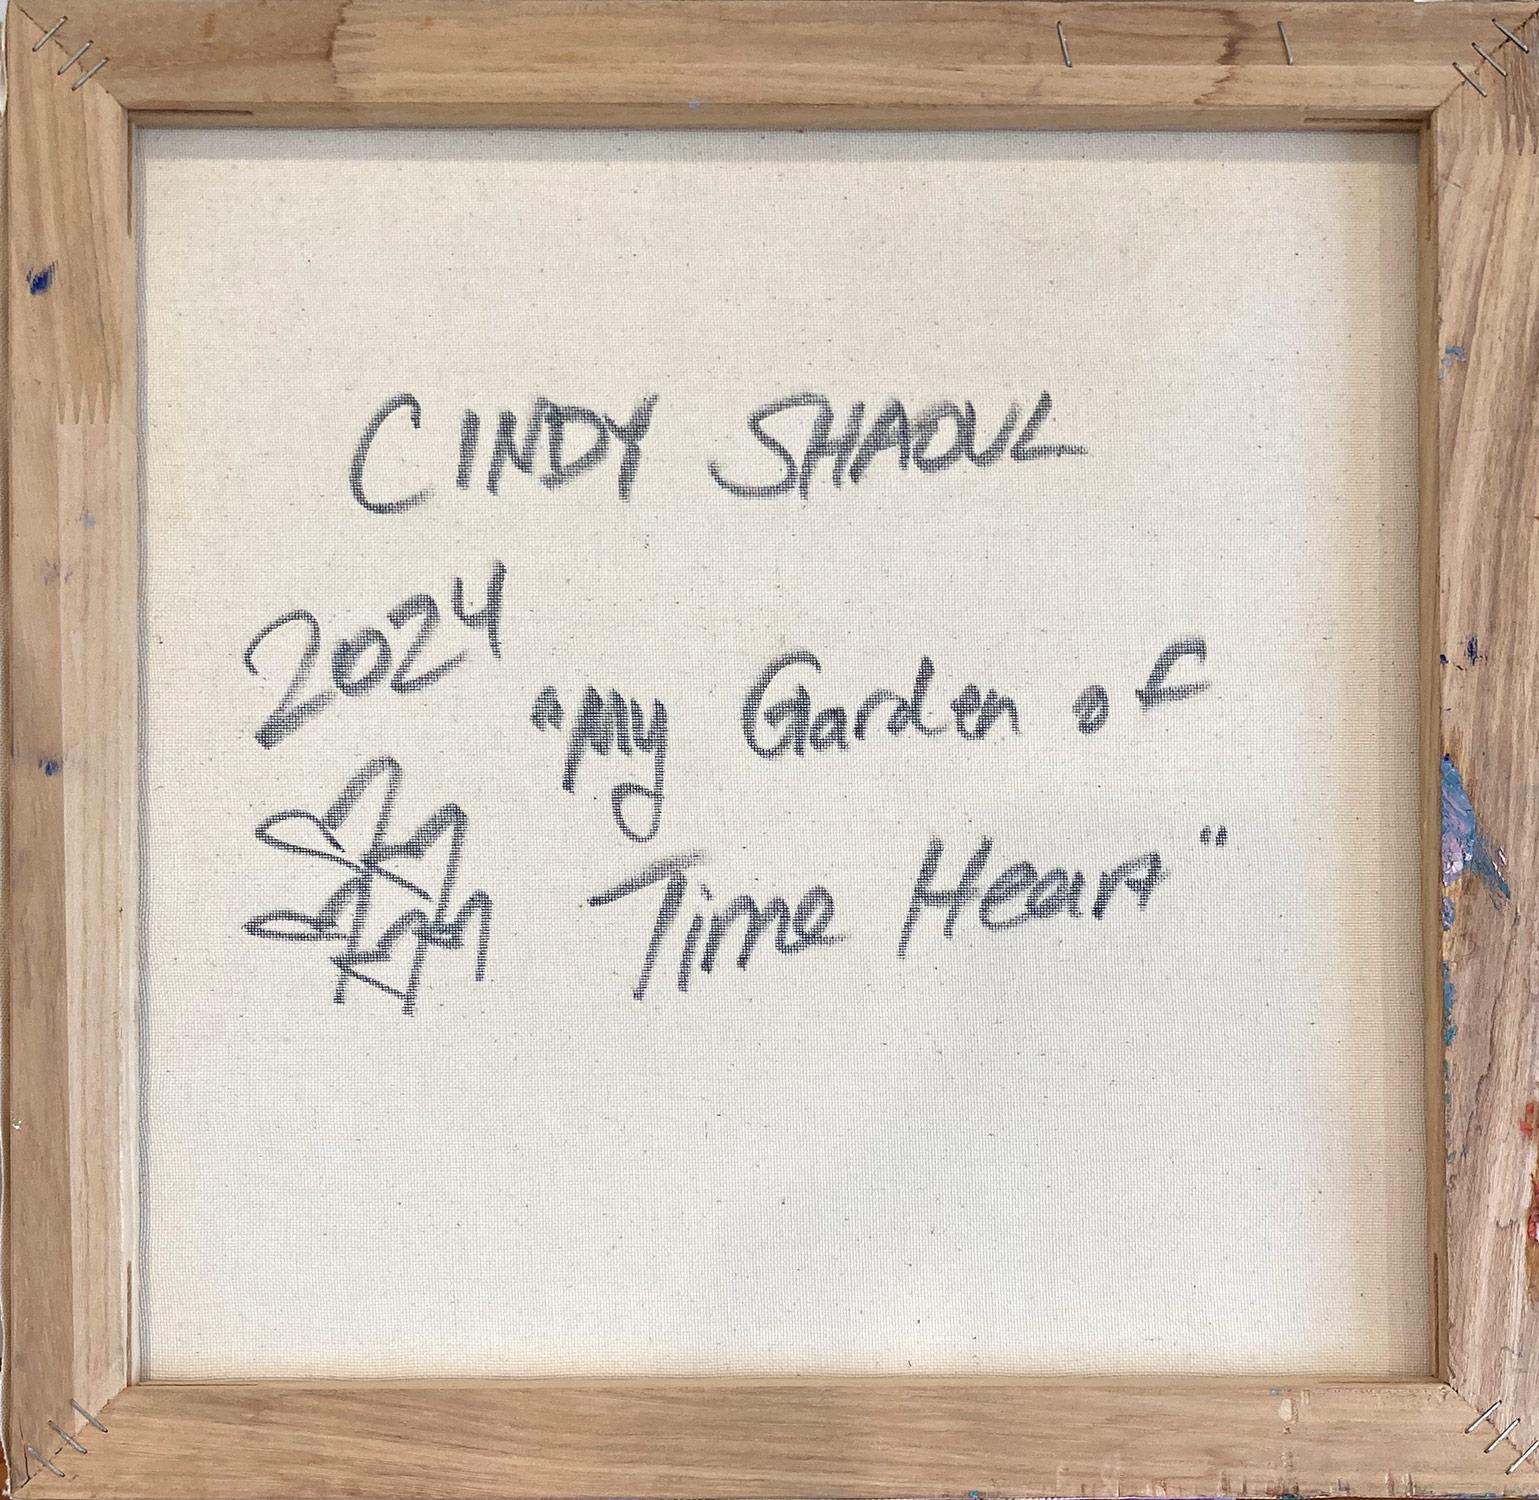 CINDY SHAOUL
2024
"My Garden of
Time Heart"